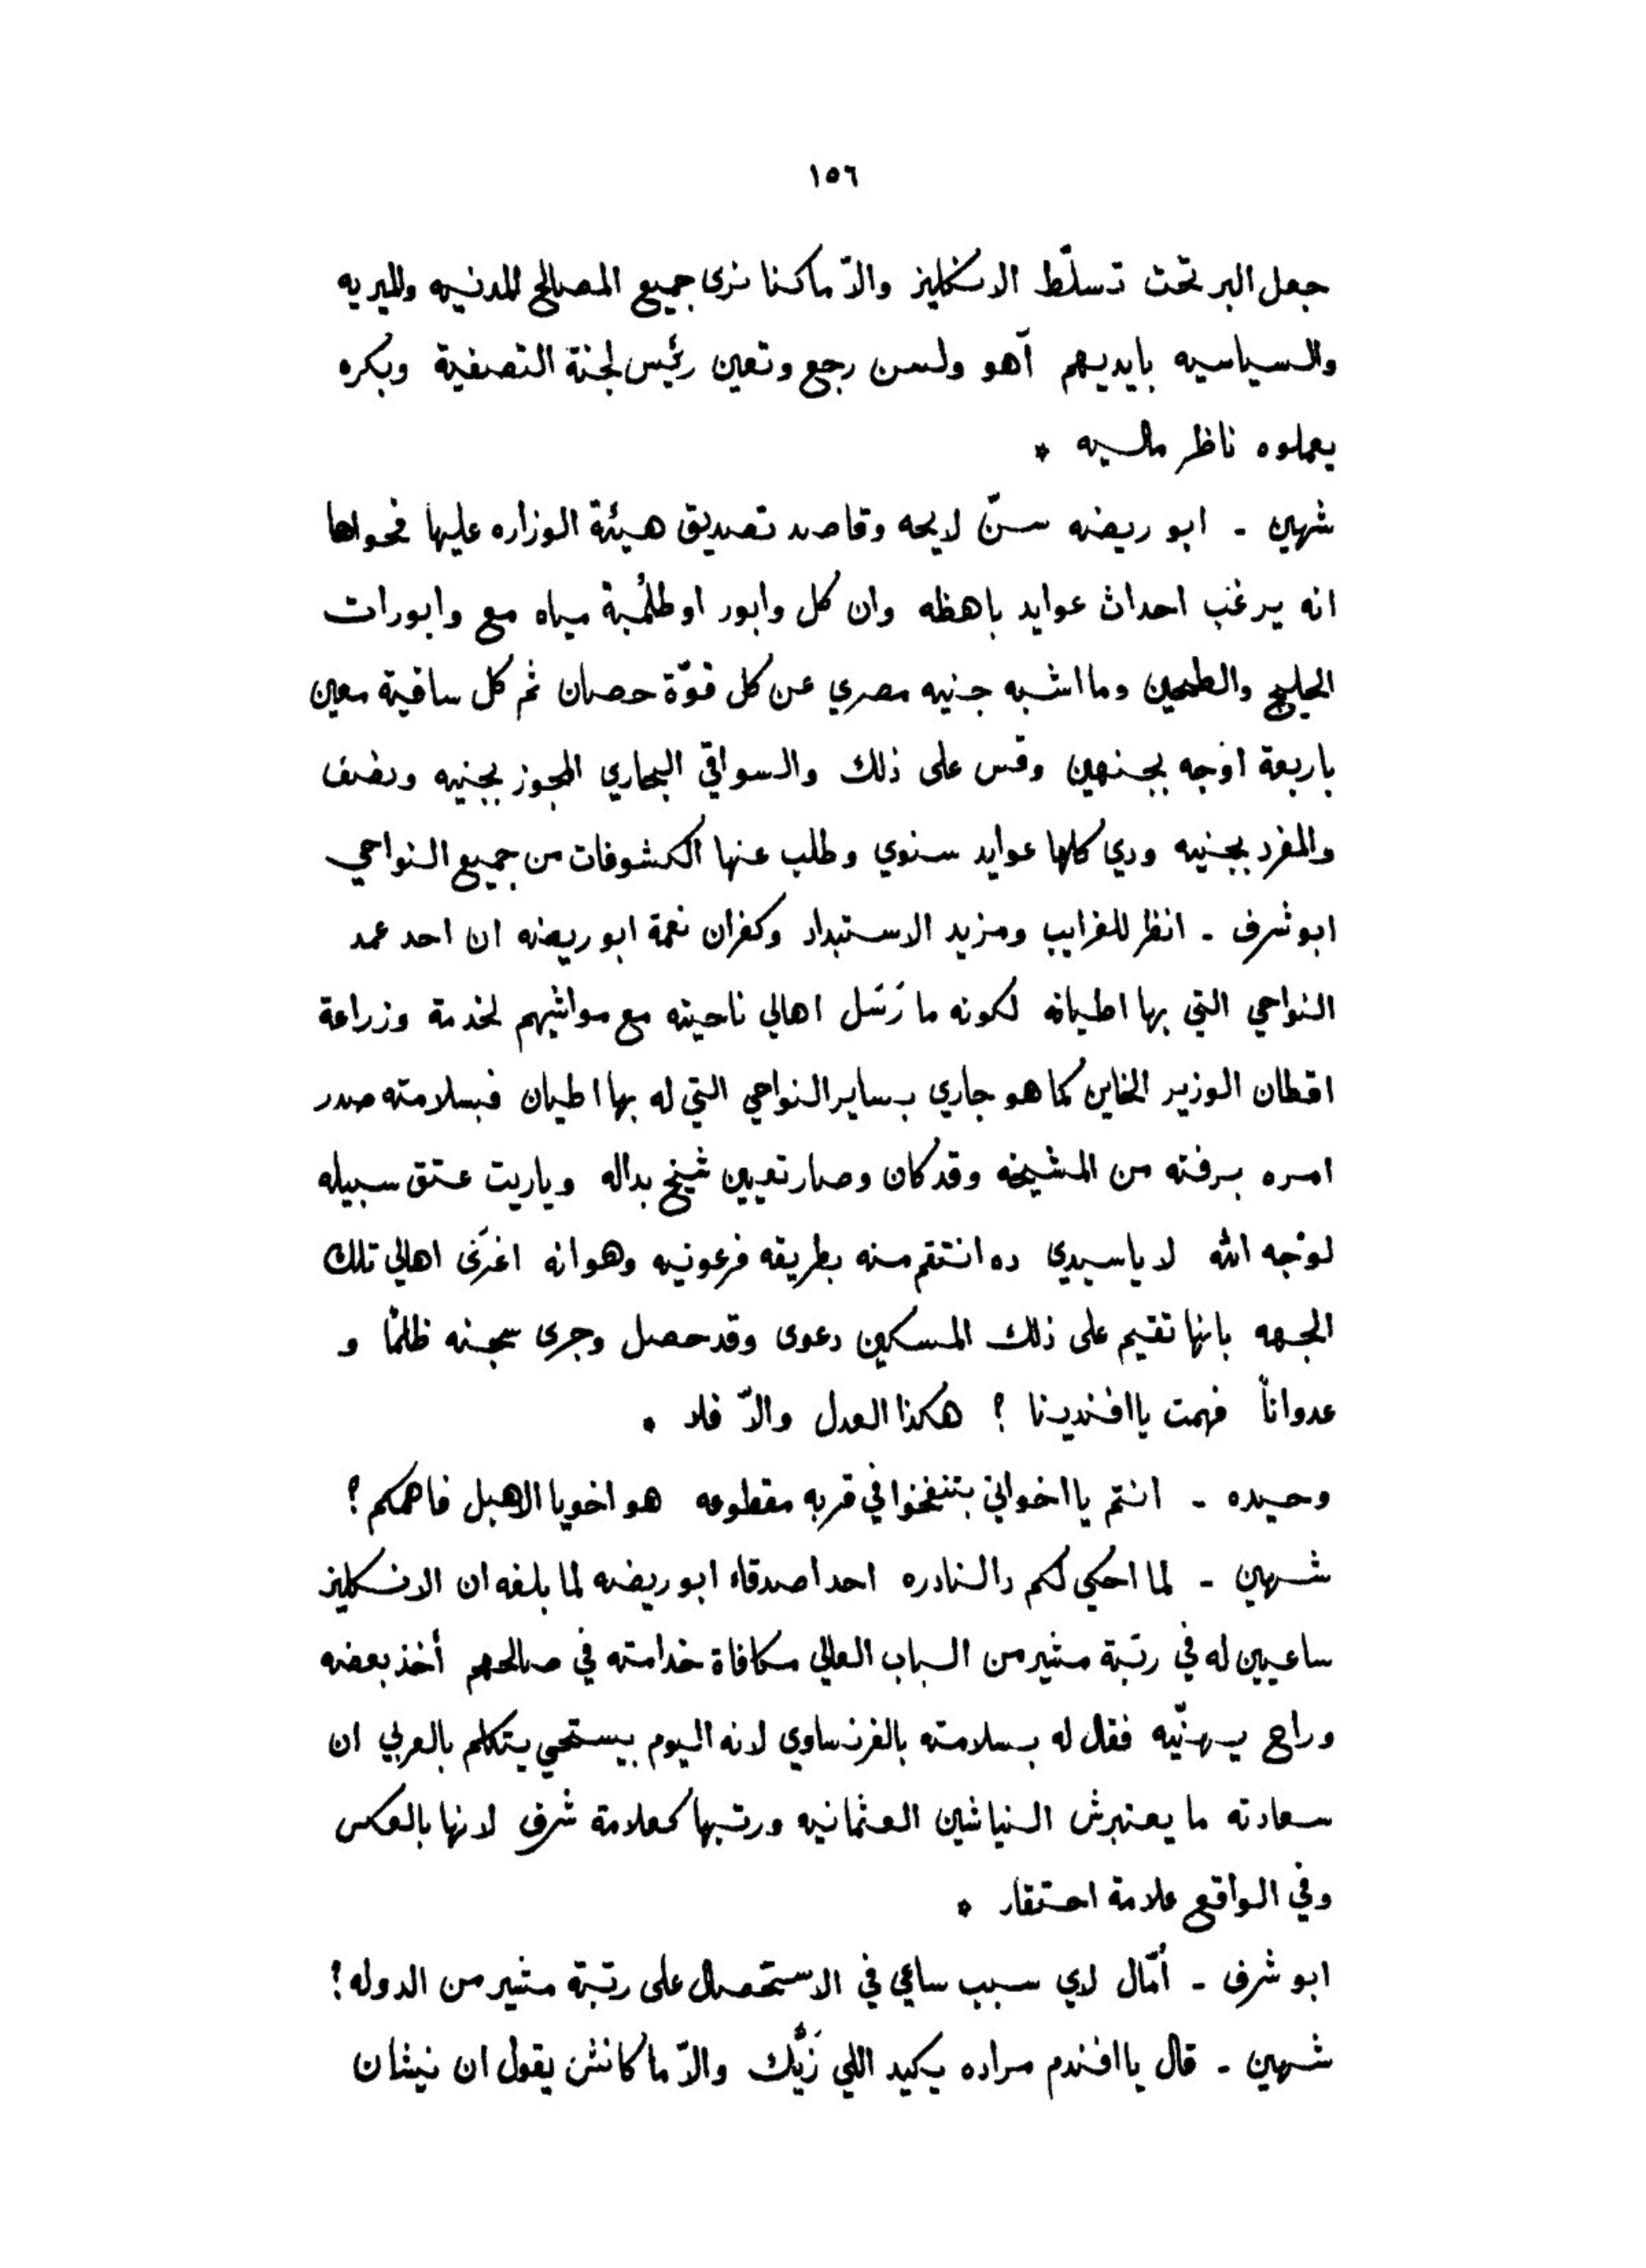 ١٥٦
جعل البر تحت تسلّط الانكليز والاّ ماكنا نرى جميع المصالح المدنيه والميريه
والسياسيه بايديهم آهو ولسن رجع وتعين رئيس لجنة التصفية وبكره
يعملوه ناظر ماليه *
شهين - ابو ريضه سنّ لايحه وقاصد تصديق هيئة الوزاره عليها فحواها
انه يرغب احداث عوايد باهظه وان كل وابور او طلمبة مياه مع وابورات
الحليج والطحين وما اشبه جنيه مصري عن كل قوّة حصان ثم كل ساقية معين
باربعة اوجه بجنهين وقس على ذلك والسواقي البحاري المجوز بجنيه ونصف
والمفرد بجنيه ودي كلها عوايد سنوي وطلب عنها الكشوفات من جميع النواحي
ابو شرف - انظر للغرايب ومزيد الاستبداد وكفران نعمة ابو ريضه ان احد عمد
النواحي التي بها اطيانه لكونه ما رَسَل اهالي ناحيته مع مواشيهم لخدمة وزراعة
اقطان الوزير الخاين كما هو جاري بساير النواحي التي له بها اطيان فبسلامته صدر
امره برفته من المشيخه وقد كان وصار تعيين شيخ بداله وياريت عتق سبيله
لوجه الله لا ياسيدي ده انتقم منه بطريقه فرعونيه وهو انه اغرَى اهالي تلك
الجهه بانها تقيم على ذلك المسكين دعوى وقد حصل وجرى سجنه ظلمًا و
عدوانًا فهمت يا افندينا ؟ هكذا العدل والاّ فلا *
وحيده - انتم يا اخواني بتنفخوا في قربه مقطوعه هو اخويا الاهبل فاهمكم ؟
شهين - لما احكي لكم دالنادره احد اصدقاء ابو ريضه لما بلغه ان الانكليز
ساعيين له في رتبة مشير من الباب العالي مكافاة خدامته في صالحهم أخذ بعضه
وراح يهنّيه فقال له بسلامته بالفرنساوي لانه اليوم بيستحي يتكلم بالعربي ان
سعادته ما يعتبرش النياشين العثمانيه ورتبها كعلامة شرف لانها بالعكس
وفي الواقع علامة احتقار *
ابو شرف - أمّال لاي سبب ساعي في الاستحصال على رتبة مشير من الدوله ؟
شهين - قال يا افندم مراده يكيد اللي زَيَّك والاّ ما كانش يقول ان نيشان